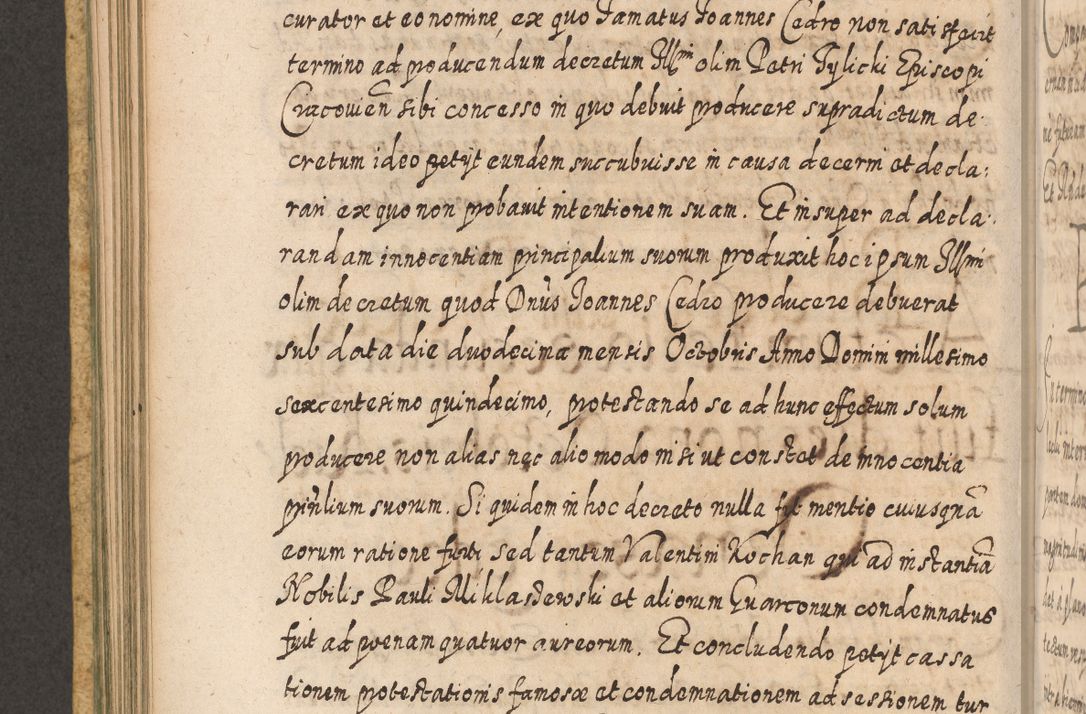 curator et eo nomine, ex quo famatus Joannes Cedro non satisfecit
termino ad producendum decretum Illmi olim Petri Tylicki Episcopi
Cracovien sibi concesso in quo debuit producere supradictum de-
cretum ideo petijt eundem succubuisse in causa decerni et decla:
rari ex quo non probavit intentionem suam. Et insuper ad decla:
randam innocentiam principalium suorum produxit hoc ipsum Illmi
olim decretum quod Dnus Joannes Cedro producere debuerat
sub data die duodecima mensis Octobris Anno Domini millesimo
sexcentesimo quindecimo, protestando se ad hunc effectum solum
producere non alias nec alio modo nisi ut constet de innocentia
prinlium suorum. Siquidem in hoc decreto nulla fit mentio cuiusqnā
eorum ratione furti, sed tantum Valentini Kochan qui ad instantiā
Nobilis Pauli Miklaszewski et aliorum Gvarconum condemnatus
fuit ad poenam quatuor aureorum. Et concludendo petijt cassa
tionem protestationis famosæ et condemnationem ad sessionem tur